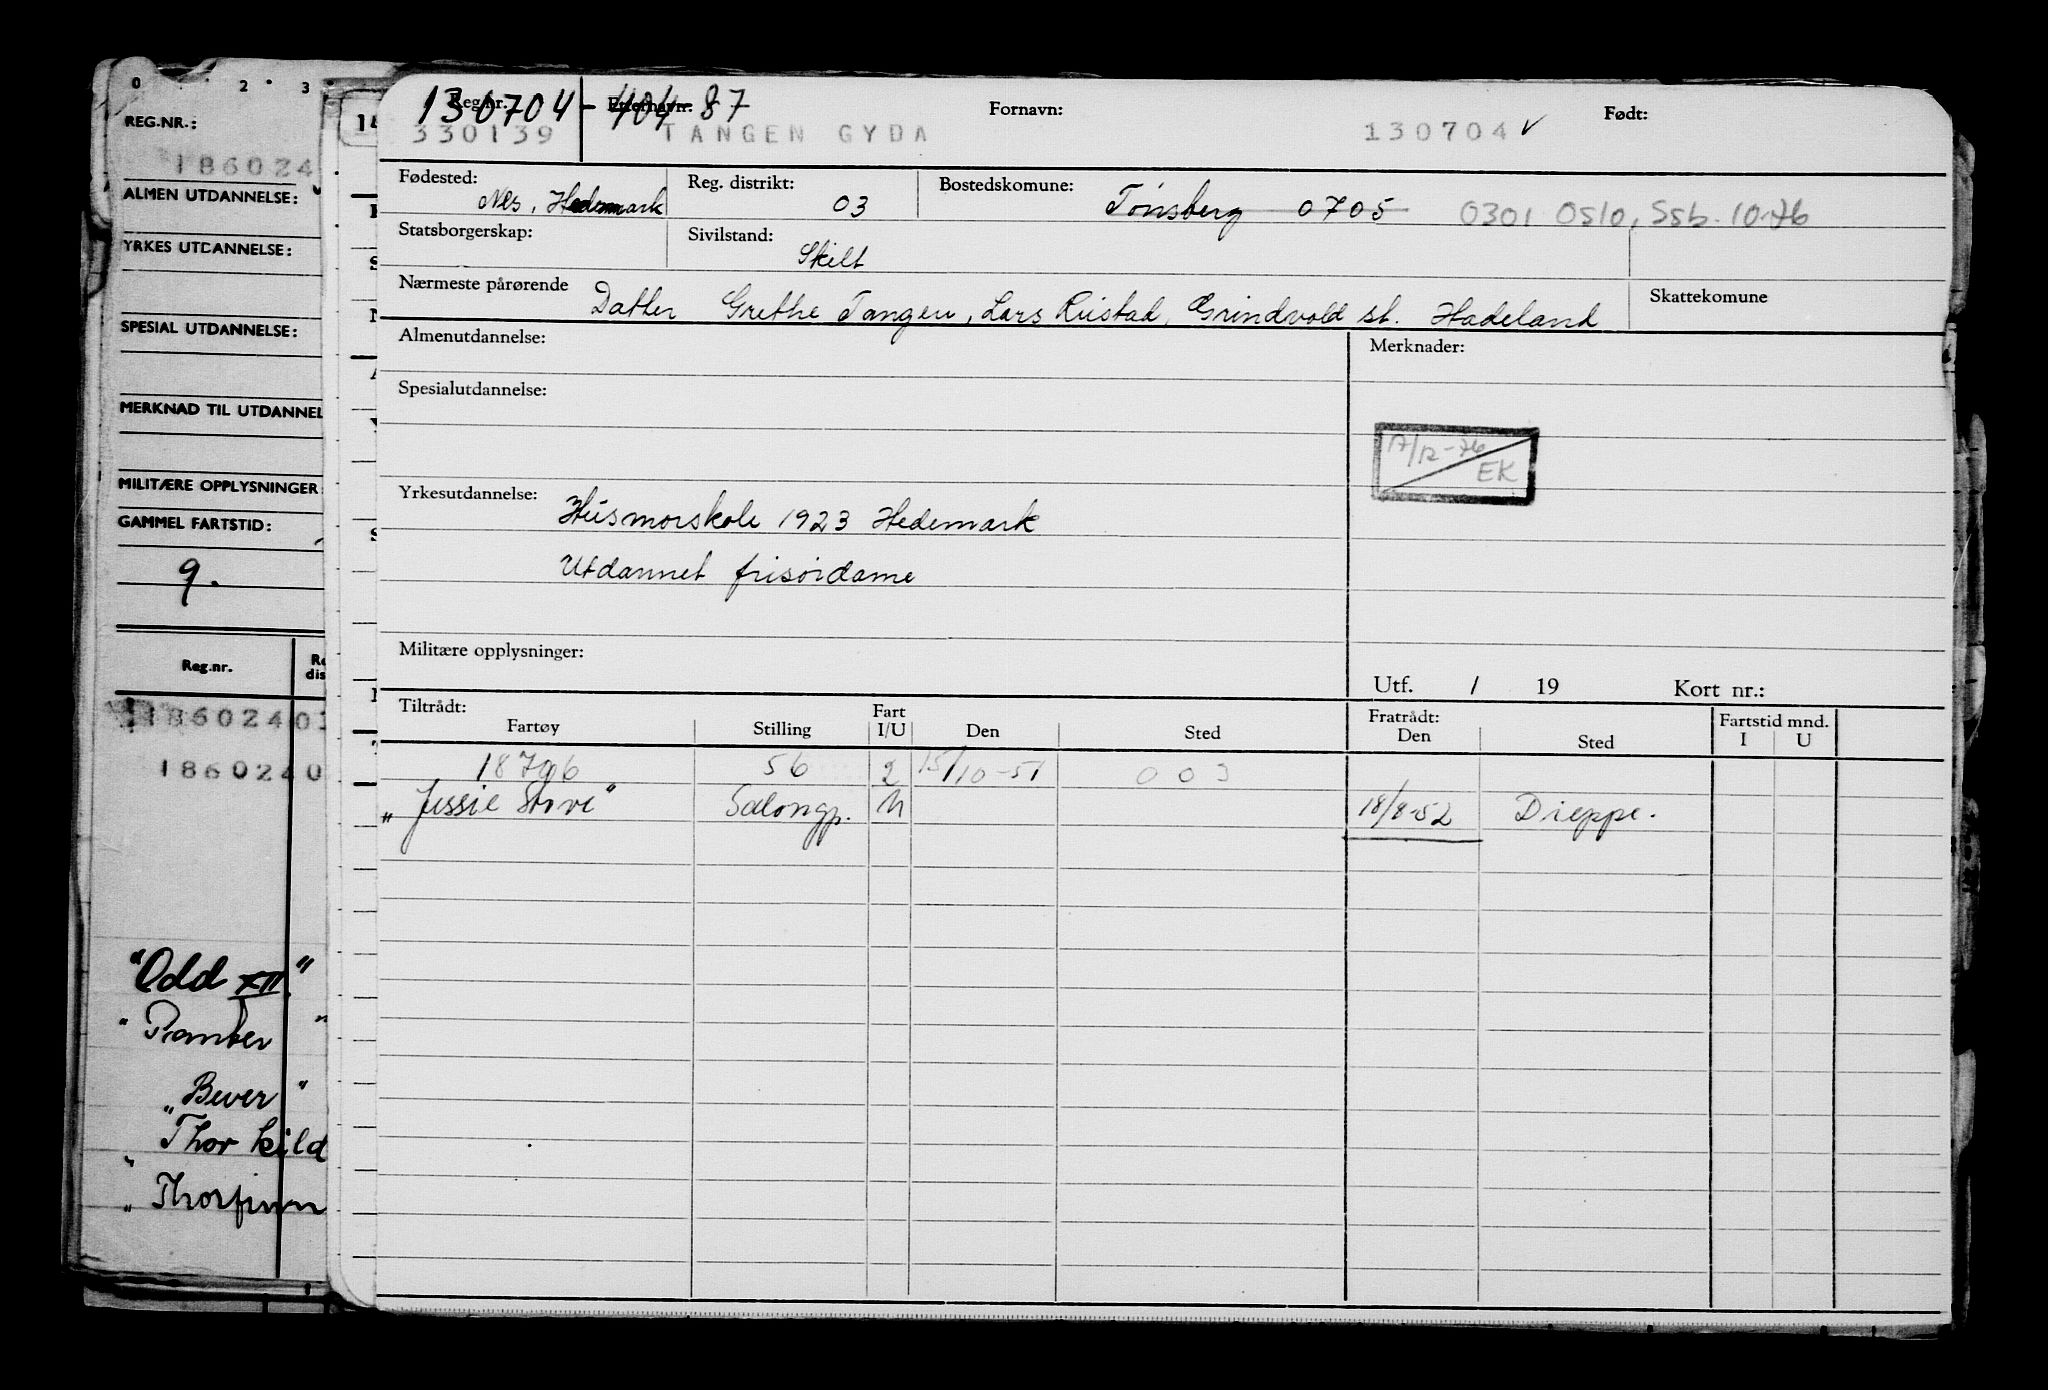 0 2 3
REG.NR.:
186024
ALMEN UTDANNELSE:
YRKES UTDANNELSE:
SPESIAL UTDANNELSE:
MERKNAD TIL UTDANNEL
MILITÆRE OPPLYSNINGER:
GAMMEL FARTSTID:
9.
Reg.nr. Re
dis
18602403
1860240
"Odd XII"
"Panter"
"Bever"
"Thorkild
"Thorfinn
14
130704-404 87
Reg.nr. Etternavn: Fornavn: Født:
330139 TANGEN GYDA 130704 ✓
Fødested: Nes, Hedemark Reg. distrikt: 03 Bostedskomune: Tønsberg 0705 0301 Oslo, Ssb. 10-76
Statsborgerskap: Sivilstand: Skilt
Nærmeste pårørende Datter Grethe Tangen, Lars Rustad, Grindvold st. Hadeland Skattekomune
Almenutdannelse: Merknader:
Spesialutdannelse:
17/12-76
EK
Yrkesutdannelse: Husmorskole 1923 Hedemark
Utdannet frisørdame
Militære opplysninger:
Utf. / 19 Kort nr.:
Tiltrådt: Fart Fratrådt: Fartstid mnd.
Fartøy Stilling I/U Den Sted Den Sted I U
18796 56 2 15/10-51 003
"Jessie Stove" Salongp. U 18/8-52 Dieppe.